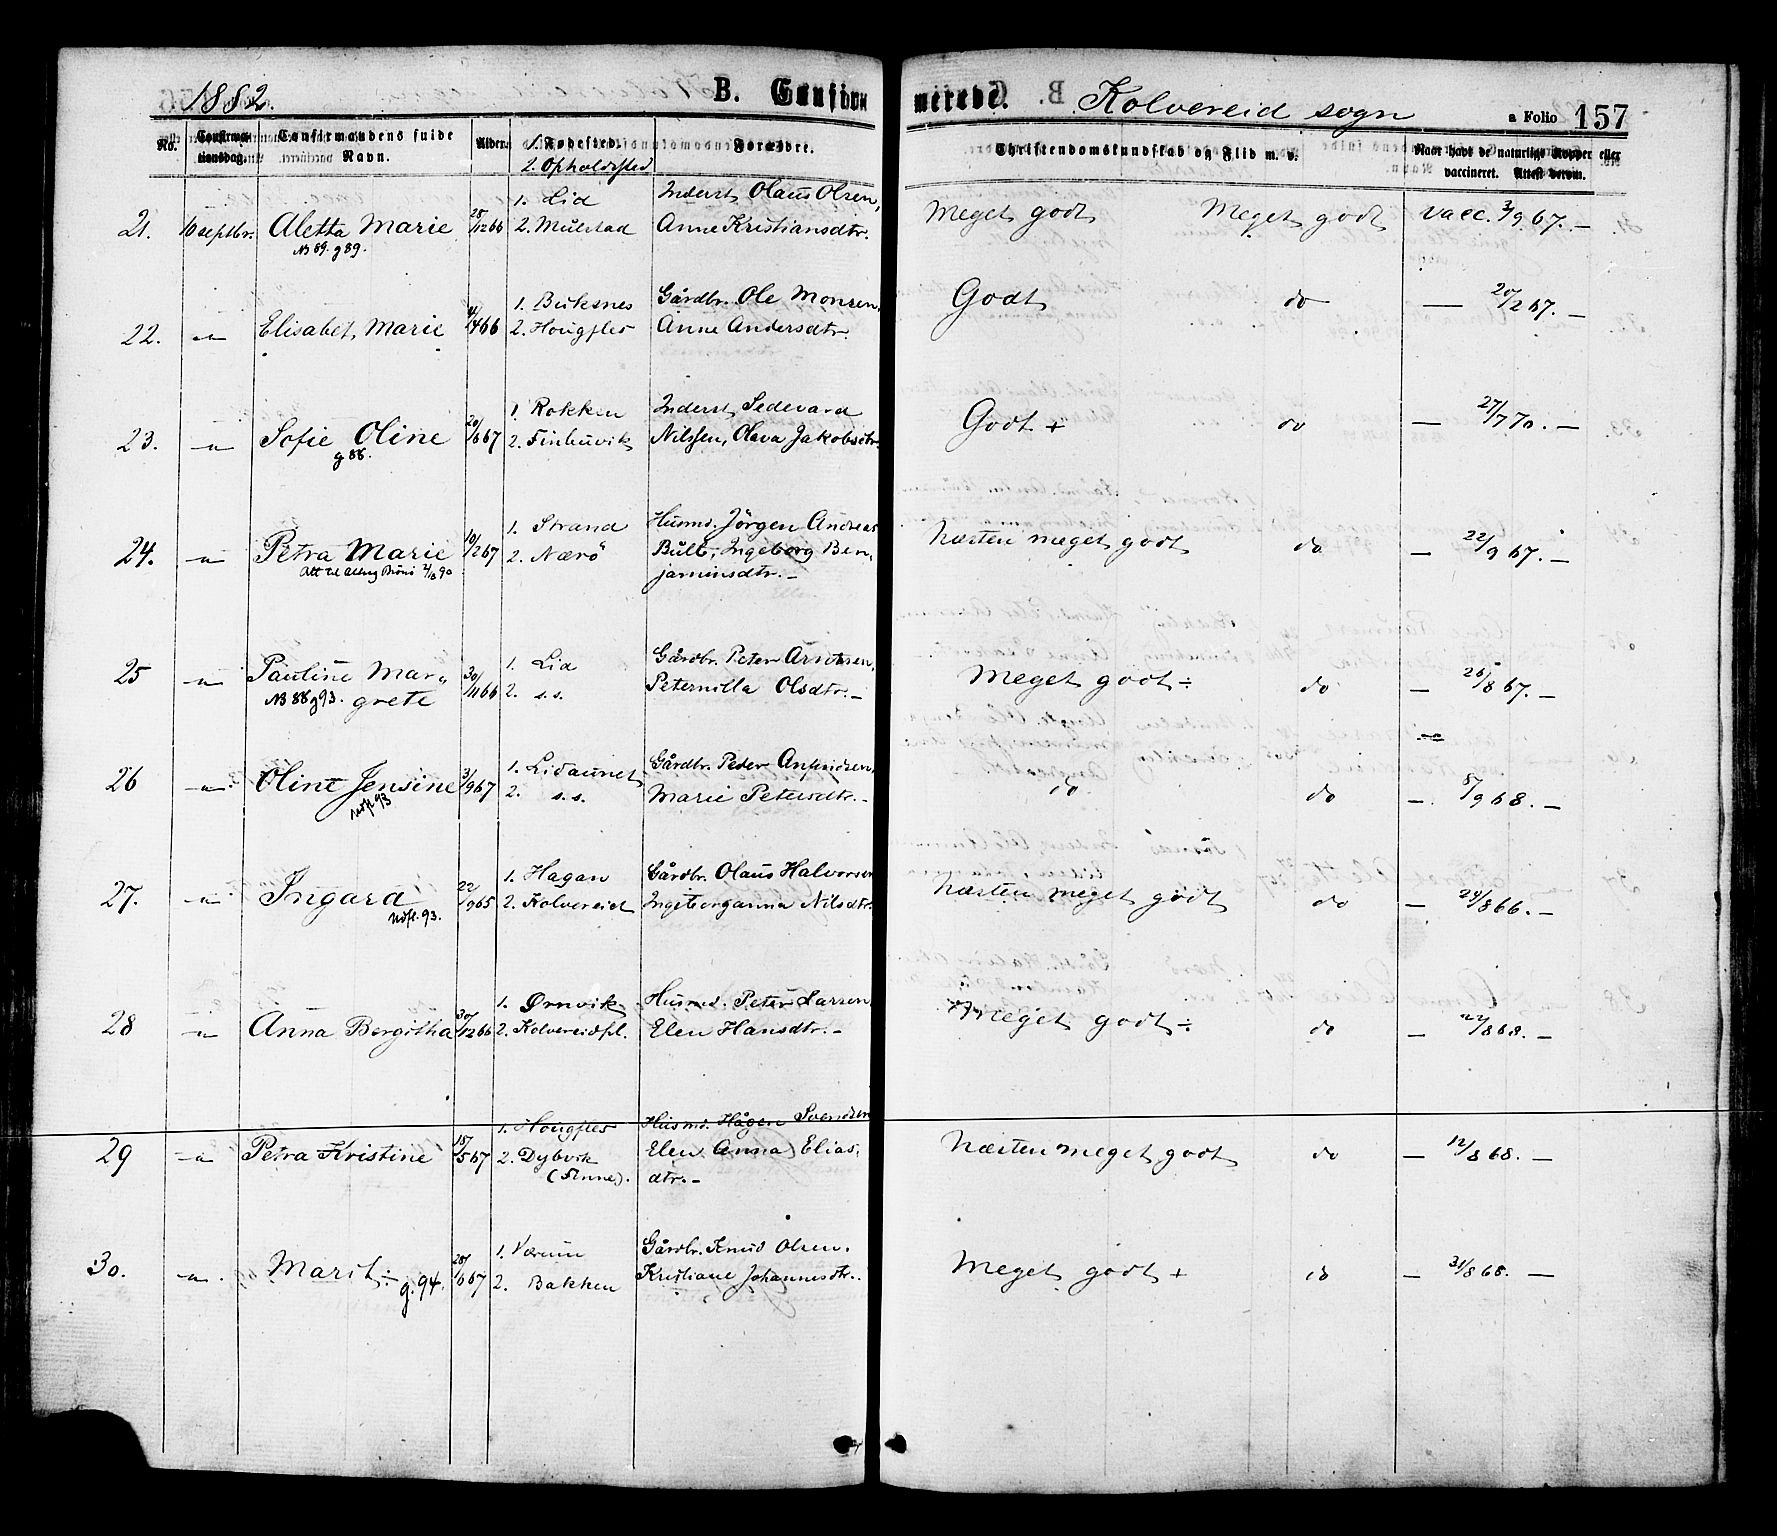 1882. B. Confirmerede. Kolvereid sogn a Folio 157
No. Confirmationsdag. Confirmandens fulde Navn. Alder. 1. Fødested. 2. Opholdssted Forældre. Christendomskundskab og Flid m. v. Naar havt de naturlige Kopper eller vaccineret. Attest derom.
1. Lid Inderst, Olaus Olsen,
21. 1 Septbr. Aletta Marie 28/12 66 2. Mulstad Anne Kristiansdtr. Meget godt Meget godt vacc. 3/9 67. —
NB 89. g 89.
1. Buksnes Gårdbr. Ole Monsen,
22. — Elisabet Marie 4/4 66 2. Hougfles Anne Andersdtr. Godt do — 20/2 67. —
1. Rokken Inderst, Sedevard
23. — Sofie Oline 20/6 67 2. Finhuvik Nilssen, Olava Jakobsdtr. Godt + do — 27/7 70. —
g 88.
1. Strand Husmd. Jörgen Andreas
24. — Petra Marie 10/2 67 2. Nærö Bull, Ingeborg Ben- Næsten meget godt do — 22/9 67. —
jaminsdtr. —
1. Lid Gårdbr. Peter Arntsen,
25 — Pauline Mar- 30/11 66 2. s. s. Peternilla Olsdtr. — Meget godt ÷ do — 26/8 67. —
NB 88 g 93. grete
1. Lidaunet Gårdbr. Peder Anfindsen,
26 — Oline Jensine 3/9 67 2. s. s. Marie Petersdtr. — do do — 8/9 68. —
Udfl. 93
1. Hagan Gårdbr. Olaus Halvorsen
27. — Ingara 22/9 65 2. Kolvereid Ingeborganna Nilsdtr. Næsten meget godt do — 24/8 66. —
Udfl. 93.
1. Ørnvik Husmd. Peter Larsen,
28 — Anna Bergitha 30/12 66 2. Kolvereidpl. Elen Hansdtr. — Meget godt ÷ do — 22/8 68. —
1. Hougfles Husmd. Hågen Svendsen
29 — Petra Kristine 15/5 67 2. Dybvik Elen Anna Elias- Næsten meget godt do — 12/8 68. —
(Finne). dtr. —
1. Værum Gårdbr. Knud Olsen.
30. — Marit ÷ 28/6 67 2. Bakken Kristiane Johannesdtr. Meget godt + do — 31/8 68. —
g. 94.